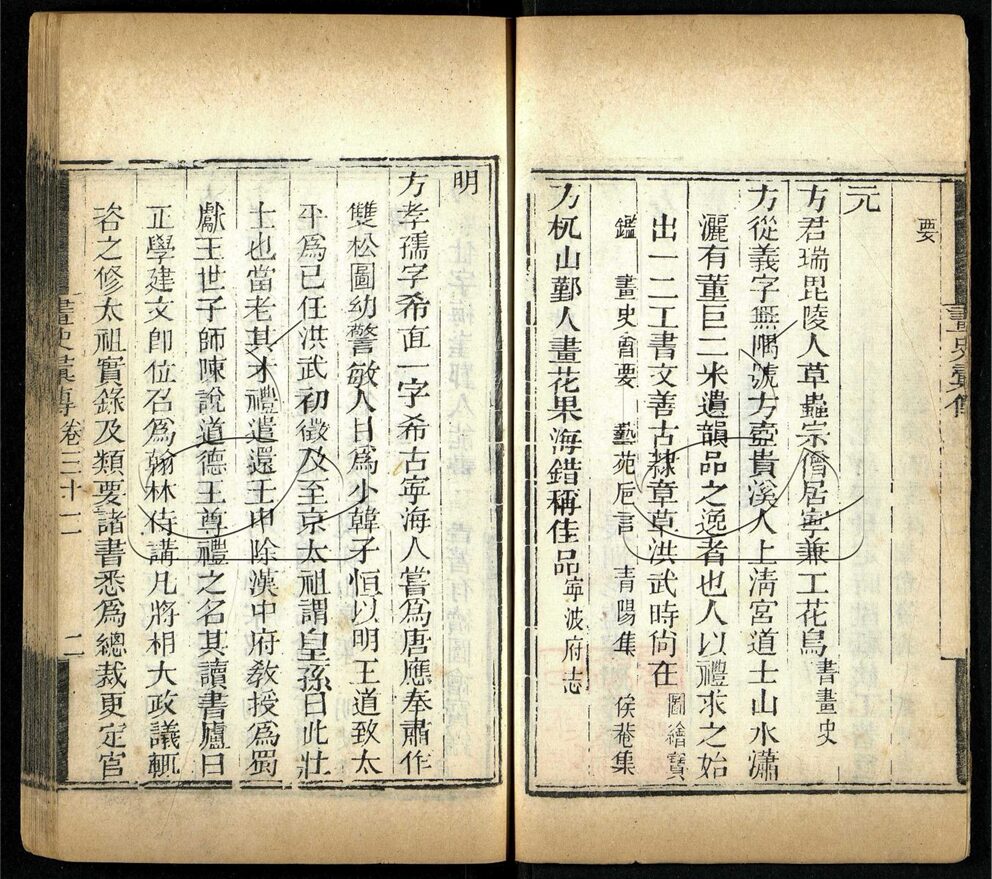 要
元
方君瑞毘陵人草蟲宗僧居寧兼工花鳥書畫史
方從義字無隅號方壺貴溪人上淸宮道士山水瀟
灑有董巨二米遺韻品之逸者也人以禮求之始
出一二工書文善古隸章草洪武時尚在圖繪寶
鑑 畫史會要 藝苑巵言 青陽集 俟菴集
方杌山鄞人畫花果海錯稱佳品寧波府志
畫史彙傳
明
方孝孺字希面一字希古寧海人嘗爲唐應奉肅作
雙松圖幼警敏人目爲小韓子恒以明王道致太
平爲己任洪武初徵及至京太祖謂皇孫曰此壯
士也當老其才禮遣還壬申除漢中府敎授爲蜀
獻王世子師陳說道德王尊禮之名其讀書廬曰
正學建文卽位召爲翰林侍講凡將相大政議輒
咨之修太祖實錄及類要諸書悉爲總裁更定官
畫史彙傳 卷三十一 二